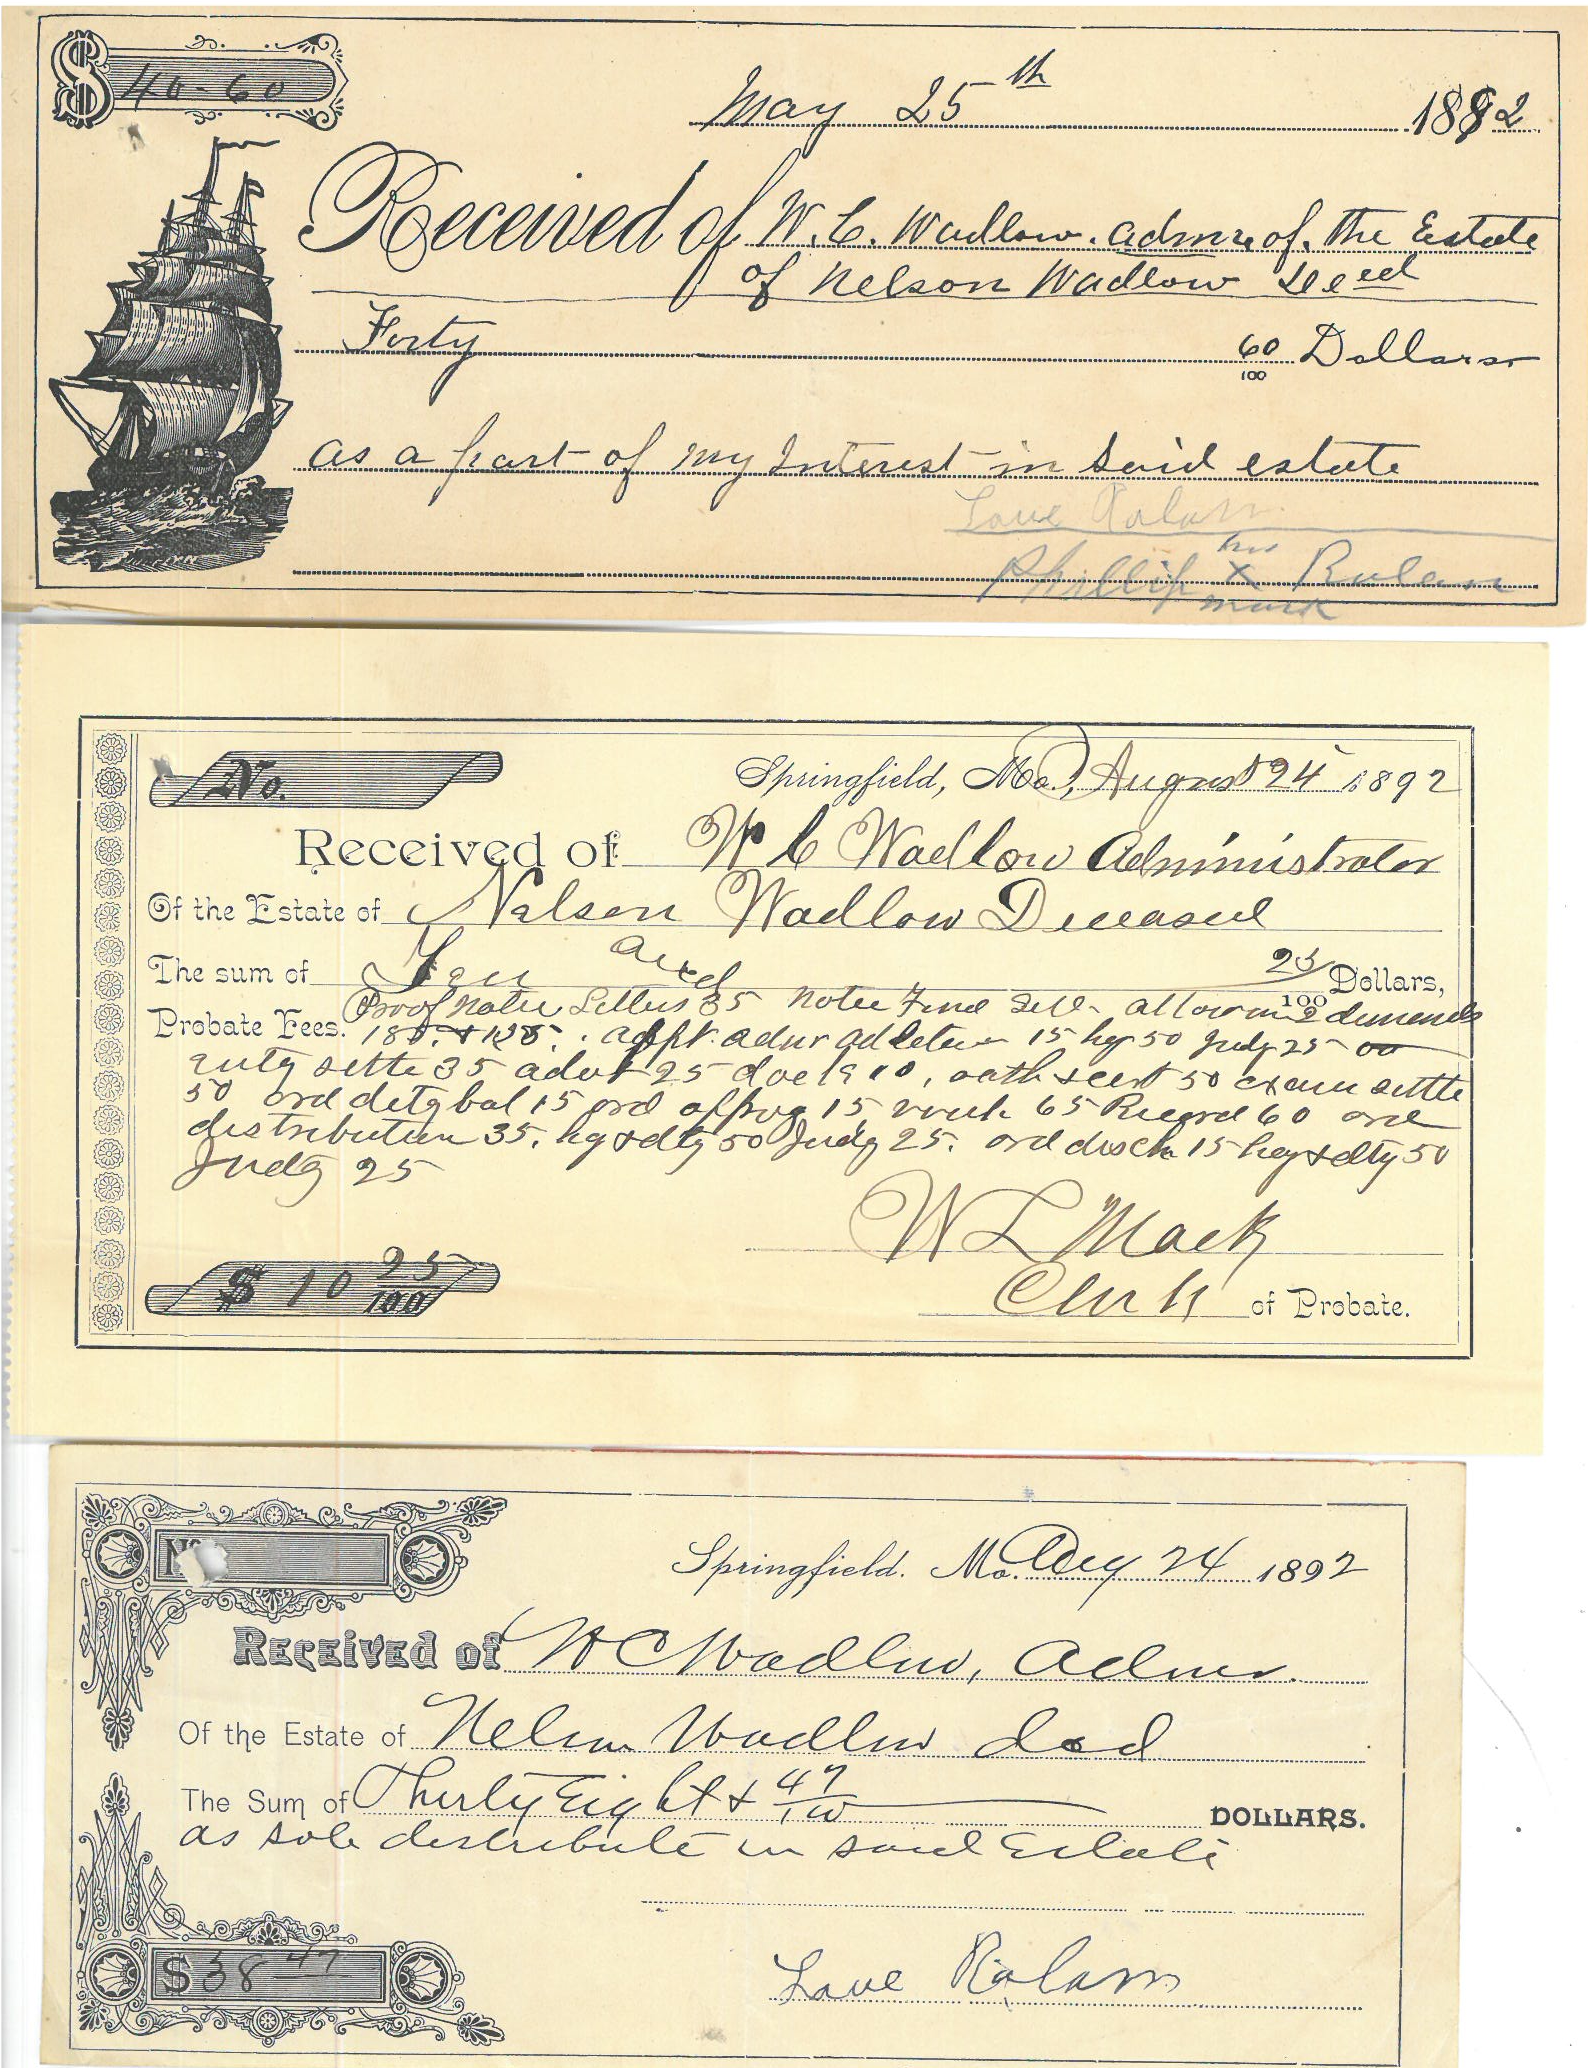 $ 40-60
May 25th 1892
Received of W. C. Wadlow. admr of. the Estate
of Nelson Wadlow Deed
Forty 60/100 Dollars
as a part of my Interest in said estate
Love Rolam
his
Phillip x Rulan
mark
No.
Springfield, Mo., August 24 1892
Received of W C Wadlow Administrator
Of the Estate of Nelson Wadlow Deceased
The sum of Ten and 25/100 Dollars,
Probate Fees. Proof Notice Letters 35 Notice Final Sett- allowing 2 demands
appt. admr ad letter 15 hg 50 Judg 25
entg settle 35 advt 25 oath & cert 50 exam settle
50 ord detg bal 15 ord approg 15 vouch 65 Record 60 ord
distribution 35. hg & dtg 50 Judg 25. ord disch 15 hg & dtg 50
Judg 25
W L Mack
Clerk of Probate.
$ 10 25/100
No.
Springfield. Mo. Aug 24 1892
Received of W C Wadlow, Admr.
Of the Estate of Nelson Wadlow dcd
The Sum of Thirty Eight & 47/100 DOLLARS.
as sole distribute in said Estate
$ 38 47
Love Rolam